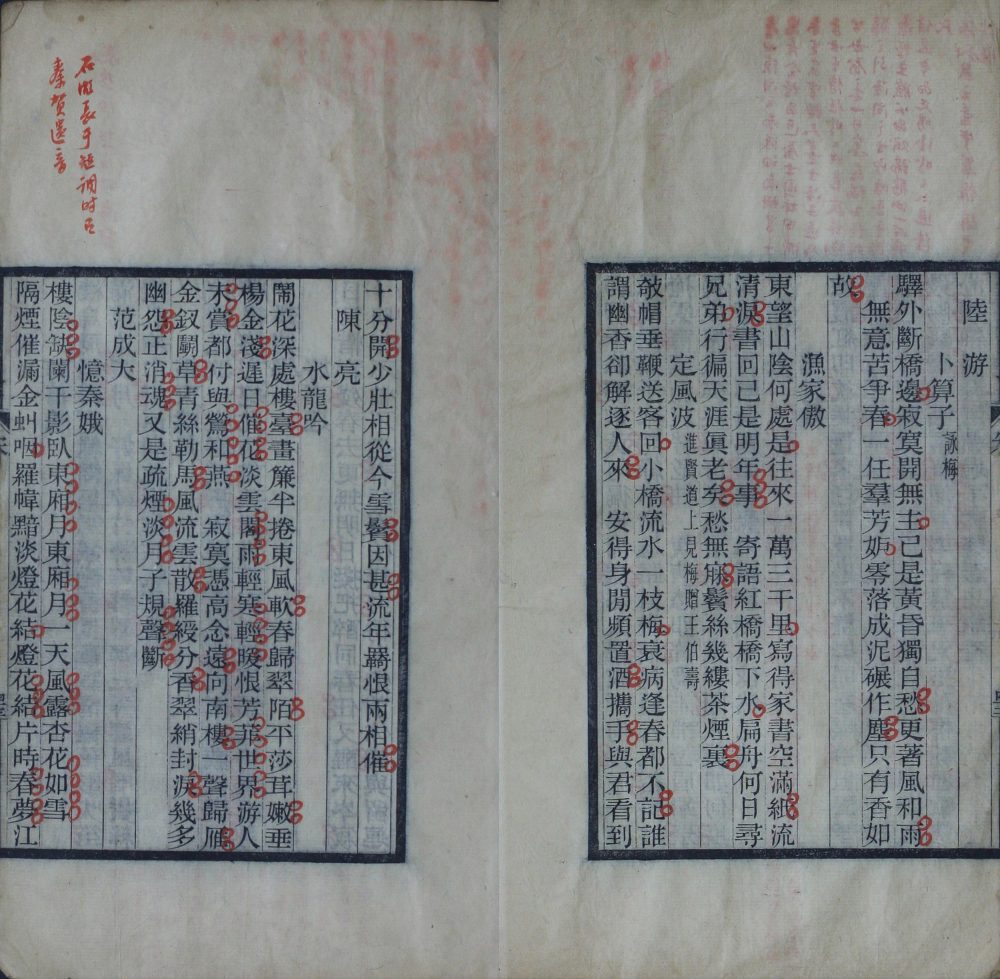 陸　游
卜算子詠梅
驛外斷橋邊寂寞開無主已是黃昏獨自愁更著風和雨
無意苦爭春一任羣芳妒零落成泥碾作塵只有香如
故
漁家傲
東望山陰何處是往來一萬三千里寫得家書空滿紙流
清淚書回已是明年事　寄語紅橋橋下水扁舟何日尋
兄弟行徧天涯眞老矣愁無寐鬢絲幾縷茶煙裏
定風波進賢道上見梅贈王伯壽
敧帽垂鞭送客回小橋流水一枝梅衰病逢春都不記誰
謂幽香卻解逐人來　安得身閒頻置酒攜手與君看到
十分開少壯相從今雪鬢因甚流年羇恨兩相催
陳　亮
水龍吟
鬧花深處樓臺畫簾半捲東風軟春歸翠陌平莎茸嫩垂
楊金淺遲日催花淡雲閣雨輕寒輕暖恨芳菲世界游人
未賞都付與鶯和燕　寂寞憑高念遠向南樓一聲歸雁
金釵鬬草青絲勒馬風流雲散羅綬分香翠綃封淚幾多
幽怨正消魂又是疏煙淡月子規聲斷
范成大
憶秦娥
樓陰缺闌干影臥東廂月東廂月一天風露杏花如雪
隔煙催漏金虯咽羅幃黯淡燈花結燈花結片時春夢江
石湖長于短調時有
秦賀遺音